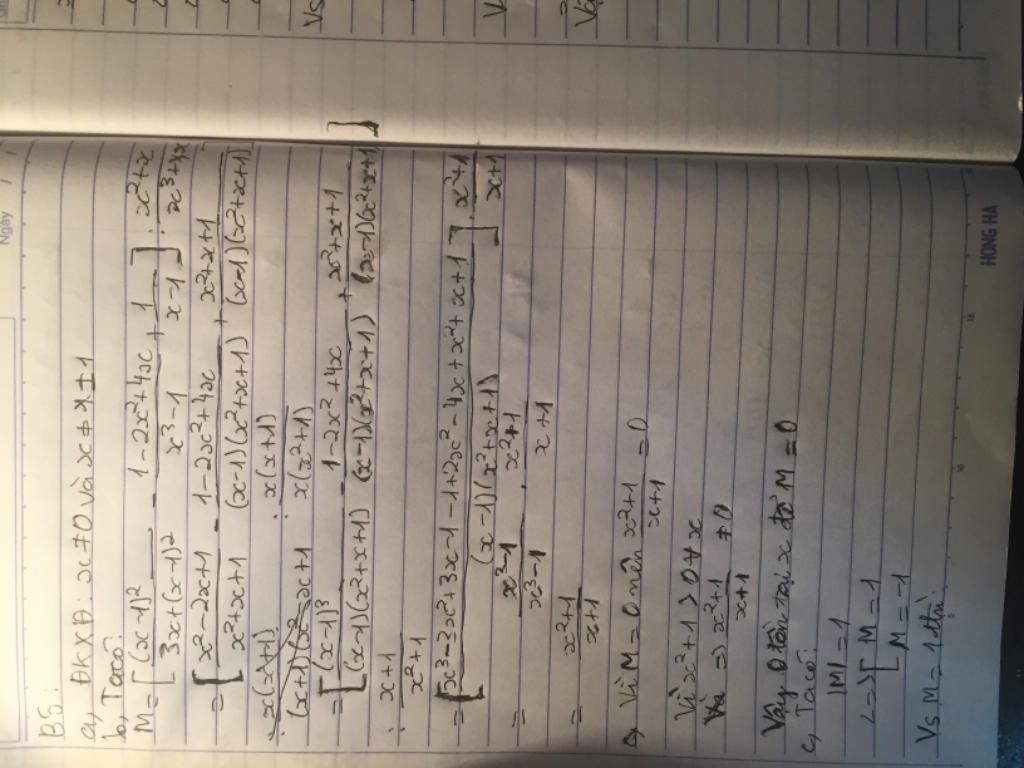 Ngày
B5:
a, ĐKXĐ: x ≠ 0 và x ≠ ±1
b, Ta có:
M = [(x-1)²/(3x+(x-1)²) - (1-2x²+4x)/(x³-1) + 1/(x-1)] : (x²+x)/(x³+x)
= [(x²-2x+1)/(x²+x+1) - (1-2x²+4x)/((x-1)(x²+x+1)) + (x²+x+1)/((x-1)(x²+x+1))]
: x(x+1)/(x(x²+1))
= [(x-1)³/((x-1)(x²+x+1)) - (1-2x²+4x)/((x-1)(x²+x+1)) + (x²+x+1)/((x-1)(x²+x+1))]
: (x+1)/(x²+1)
= [(x³-3x²+3x-1-1+2x²-4x+x²+x+1)/((x-1)(x²+x+1))] . (x²+1)/(x+1)
= (x³-1)/(x³-1) . (x²+1)/(x+1)
= (x²+1)/(x+1)
Vì M = 0 nên (x²+1)/(x+1) = 0
Vì x²+1 > 0 ∀ x
=> (x²+1)/(x+1) ≠ 0
Vậy tồn tại x để M = 0
c, Ta có:
|M| = 1
<=> [M = 1
M = -1
Vs M = 1 thì:
HONG HA